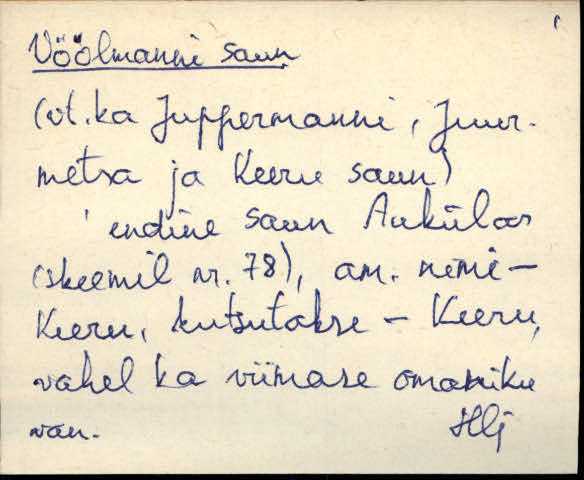 Vöölmanni saun
(vt. ka Juppermanni, Juur-
metsa ja Keeru saun)
' endine saun Aukülas
(skeemil nr. 78), am. nimi –
Keeru, kutsutakse – Keeru,
vahel ka viimase omaniku
HLj